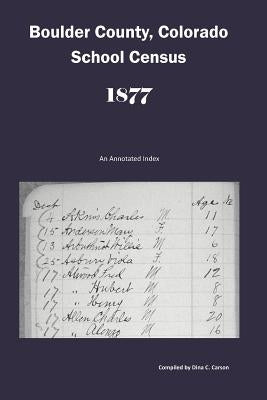 Boulder County, Colorado
School Census
1877
An Annotated Index
Dist Age
4 Akins, Charles M. 11
15 Anderson Mary F. 17
13 Arbuthnot Willie M 6
25 Asbury Viola F. 18
17 Atwood Fred M 12
17 " Hubert M 8
17 " Henry M 8
17 Allen Charles M 20
17 " Alonzo M 16
Compiled by Dina C. Carson